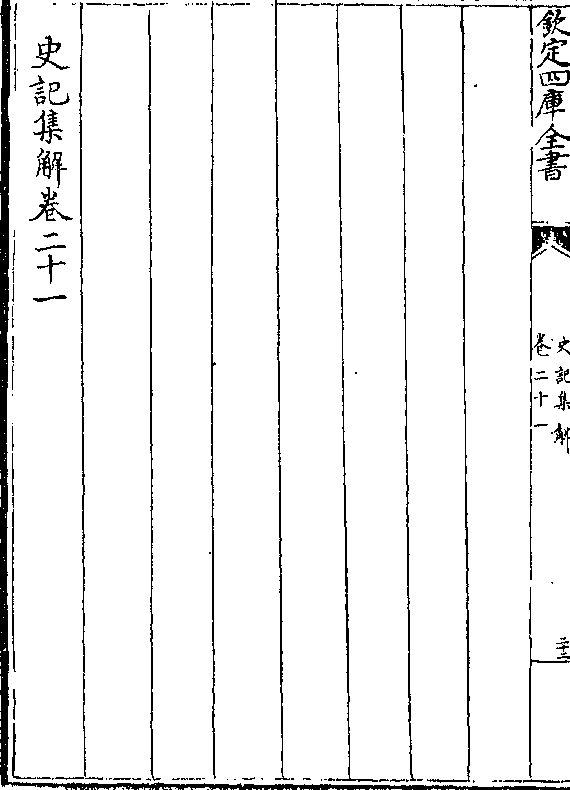 欽定四庫全書
史記集解
卷二十一
史記集解卷二十一